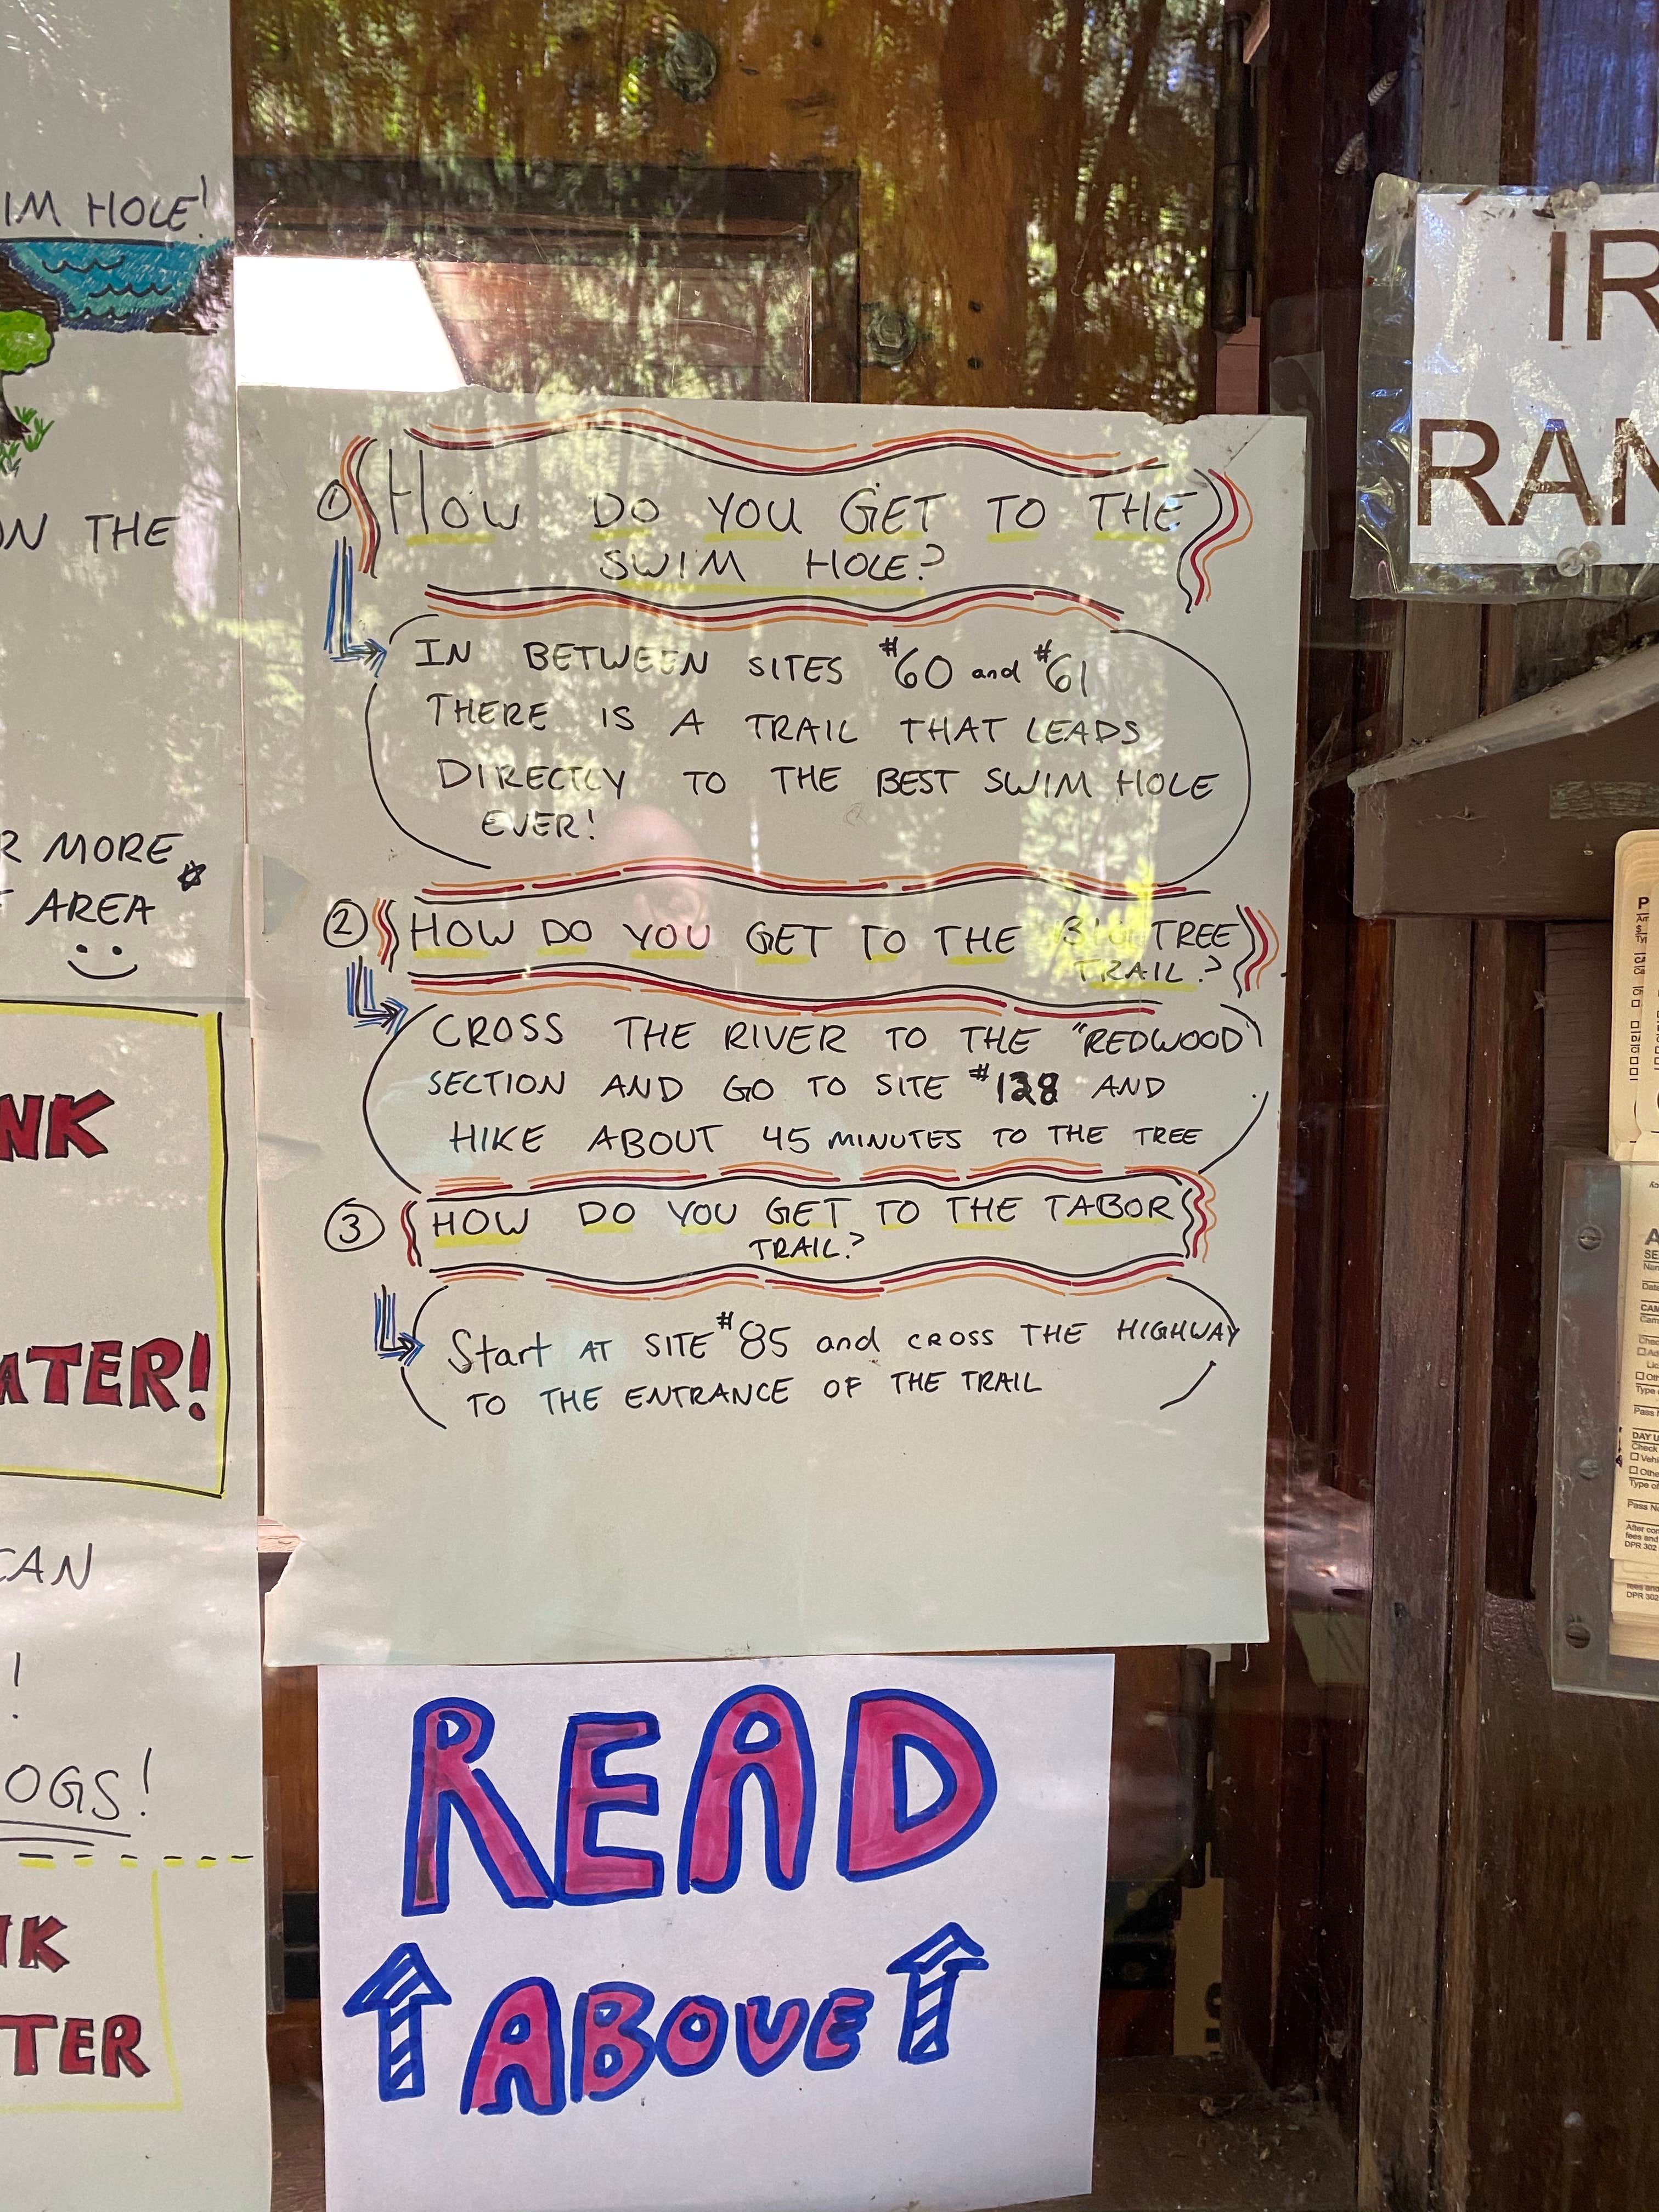 IM HOLE!
ON THE
R MORE
AREA
NK
ATER!
CAN
!
OGS!
NK
TER
① HOW DO YOU GET TO THE
SWIM HOLE?
IN BETWEEN SITES #60 and #61
THERE IS A TRAIL THAT LEADS
DIRECTLY TO THE BEST SWIM HOLE
EVER!
② HOW DO YOU GET TO THE BIG TREE
TRAIL?
CROSS THE RIVER TO THE "REDWOOD"
SECTION AND GO TO SITE #128 AND
HIKE ABOUT 45 MINUTES TO THE TREE
③ HOW DO YOU GET TO THE TABOR
TRAIL?
Start AT SITE #85 and CROSS THE HIGHWAY
TO THE ENTRANCE OF THE TRAIL
READ
ABOVE
IR
RAN
DAY U
Check
Type of
Pass N
After con
fees and
DPR 302
fees and
DPR 302